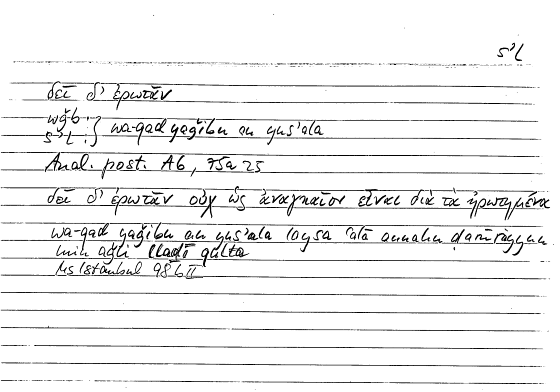 s'l
δεῖ δ' ἐρωτᾶν
wǧb :
s'l : } wa-qad yaǧibu an yus'ala
Anal. post. A6, 75a25
δεῖ δ' ἐρωτᾶν οὐχ ὡς ἀναγκαῖον εἶναι διὰ τὰ ἠρωτημένα
wa-qad yaǧibu an yus'ala laysa 'alā annahu ḍarūriyyun
min aǧli llaḏī
Ms Istanbul 986 II